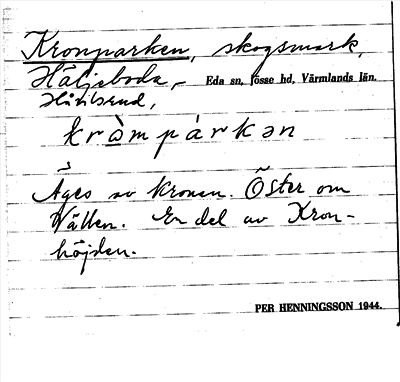 Kronparken, skogsmark,
Häljeboda, Eda sn, Jösse hd, Värmlands län.
kròmpárkən
Äges av kronan. Öster om
Vällen. En del av Kron-
höjden.
PER HENNINGSSON 1944.